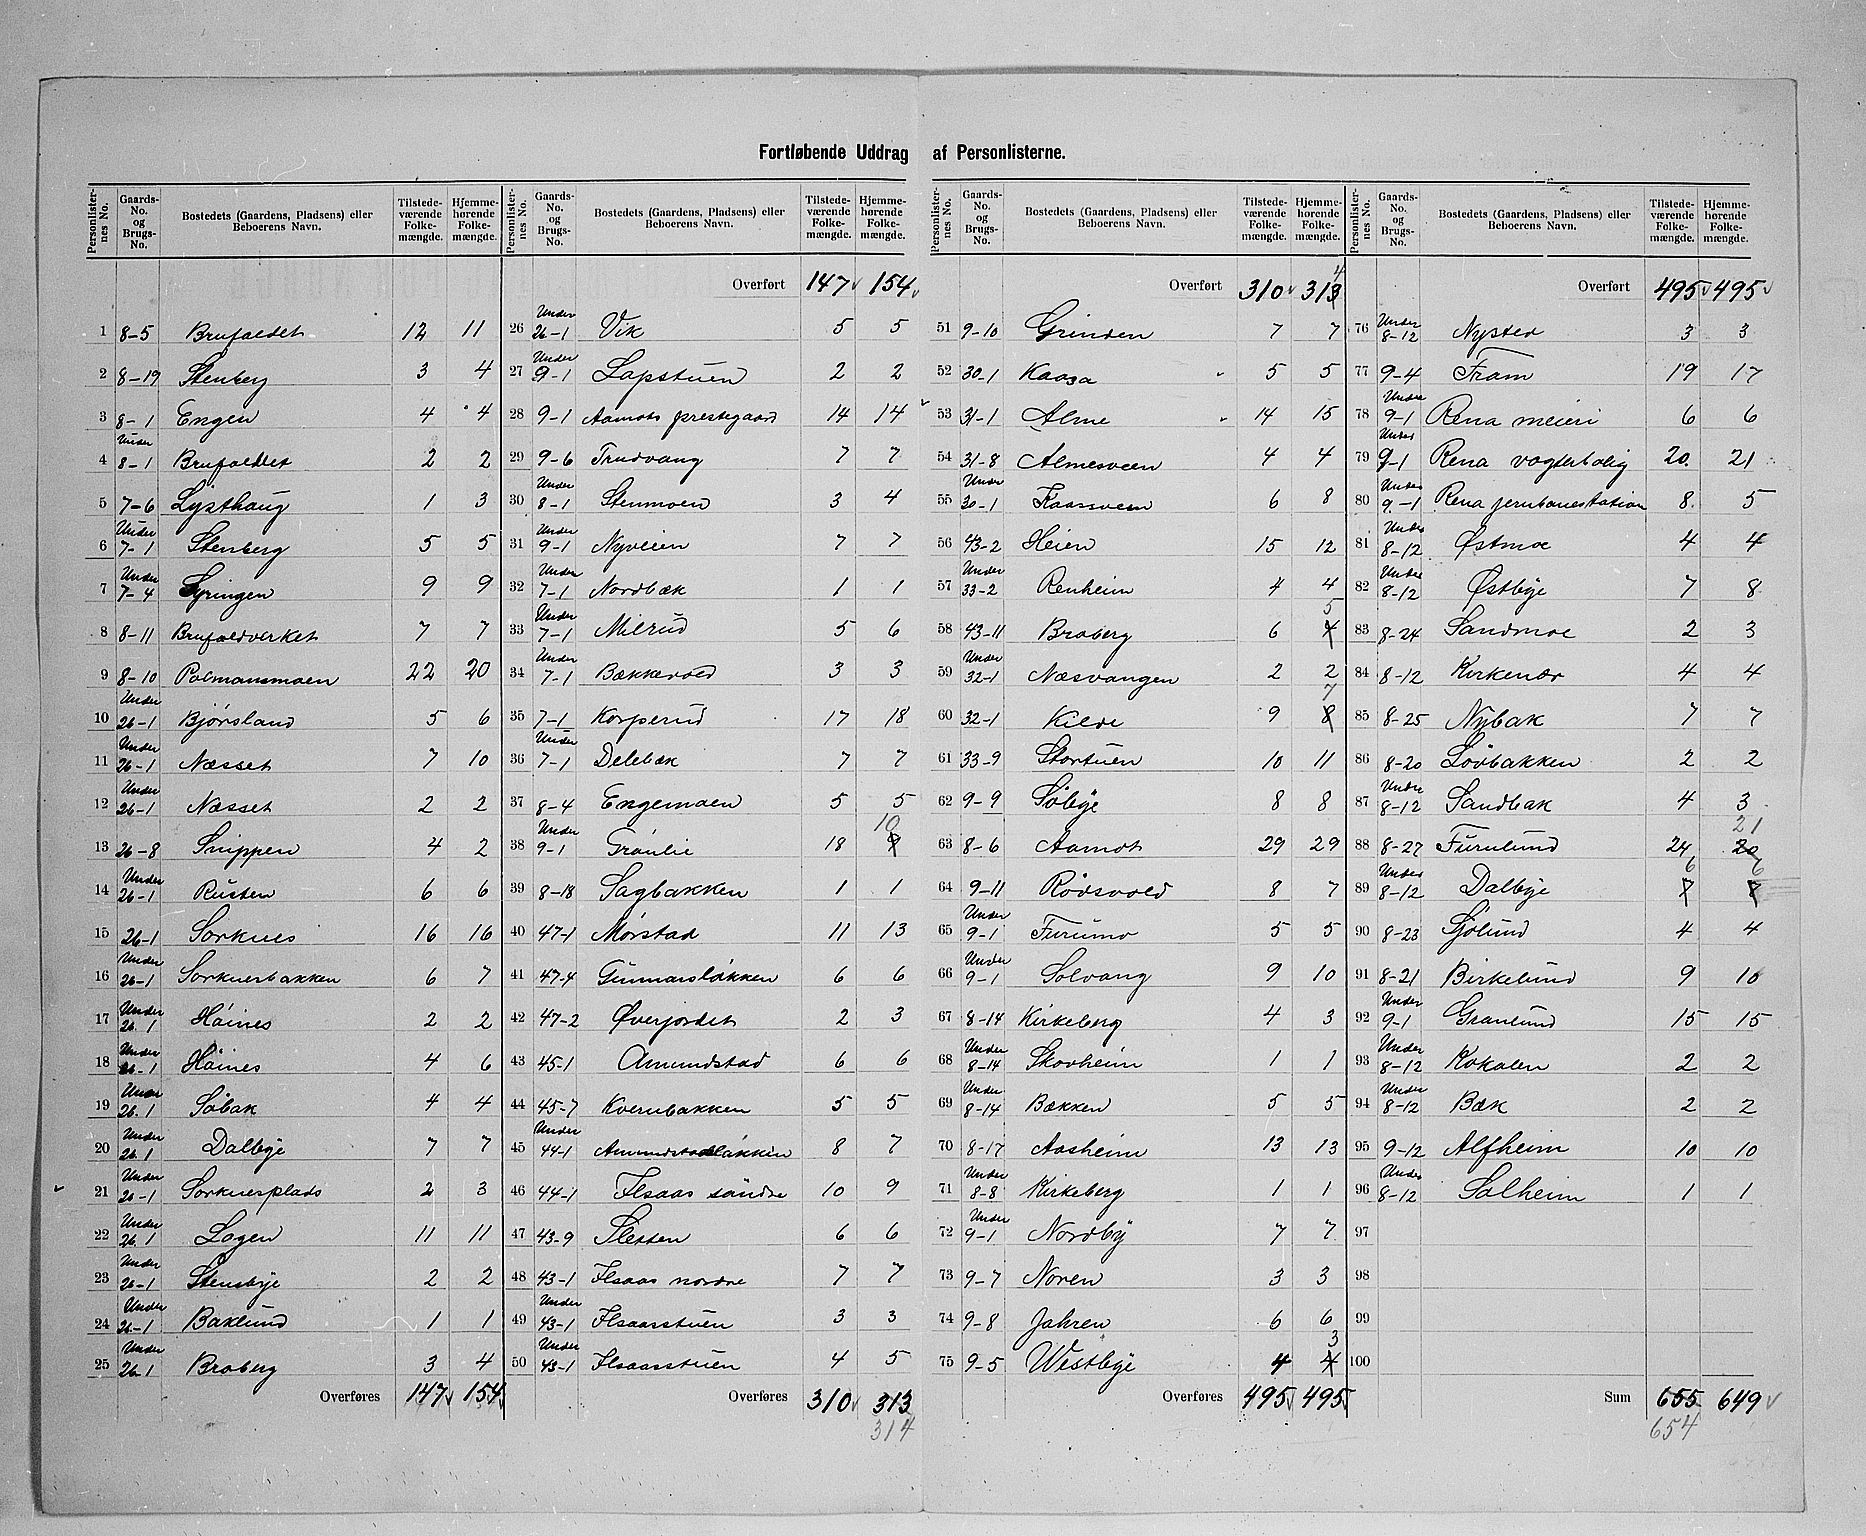 Fortløbende Uddrag af Personlisterne.
Personlisternes No. Gaards-No. og Brugs-No. Bostedets (Gaardens, Pladsens) eller Beboerens Navn. Tilstedeværende Folkemængde. Hjemmehørende Folkemængde.
1 8-5 Brufaldet 12 11
2 8-19 Stenberg 3 4
3 8-1 Engen 4 4
4 Under 8-1 Brufaldet 2 2
5 7-6 Lysthaug 1 3
6 Under 7-1 Stenberg 5 5
7 Under 7-4 Syringen 9 9
8 8-11 Brufaldverket 7 7
9 8-10 Polmansmoen 22 20
10 Under 26-1 Bjørsland 5 6
11 Under 26-1 Næsset 7 10
12 Under 26-1 Næsset 2 2
13 26-8 Snippen 4 2
14 Under 26-1 Rusten 6 6
15 26-1 Sorknes 16 16
16 Under 26-1 Sorknesbakken 6 7
17 Under 26.1 Høines 2 2
18 Under 26-1 Høines 4 6
19 Under 26.1 Søbak 4 4
20 Under 26.1 Dalbye 7 7
21 Under 26-1 Sorknesplads 2 3
22 Under 26.1 Logen 11 11
23 Under 26-1 Stensbye 2 2
24 Under 26-1 Baklund 1 1
25 Under 26.1 Broberg 3 4
Overføres 147 154
Personlisternes No. Gaards-No. og Brugs-No. Bostedets (Gaardens, Pladsens) eller Beboerens Navn. Tilstedeværende Folkemængde. Hjemmehørende Folkemængde.
Overført 147 154
26 Under 26-1 Vik 5 5
27 Under 9-1 Lapstuen 2 2
28 9-1 Aamots prestegaard 14 14
29 9-6 Trudvang 7 7
30 Under 8-1 Stenmoen 3 4
31 Under 9-1 Nyveien 7 7
32 Under 7-1 Nordbæk 1 1
33 Under 7-1 Milrud 5 6
34 Under 7-1 Bækkevold 3 3
35 7-1 Korperud 17 18
36 Under 7-1 Delebæk 7 7
37 8-4 Engemoen 5 5
38 Under 9-1 Grønlie 18 9 10
39 8-18 Sagbakken 1 1
40 47-1 Mørstad 11 13
41 47-4 Gunnarsløkken 6 6
42 47-2 Øverjordet 2 3
43 45-1 Amundstad 6 6
44 45-7 Kvernbakken 5 5
45 Under 44-1 Amundstadløkken 8 7
46 44-1 Ilsaas søndre 10 9
47 43-9 Sletten 6 6
48 43-1 Ilsaas nordre 7 7
49 Under 43-1 Ilsaasstuen 3 3
50 Under 43-1 Ilsaasstuen 4 5
Overføres 310 313
314
Personlisternes No. Gaards-No. og Brugs-No. Bostedets (Gaardens, Pladsens) eller Beboerens Navn. Tilstedeværende Folkemængde. Hjemmehørende Folkemængde.
Overført 310 313 4
51 9-10 Grinden 7 7
52 30-1 Kaasa 5 5
53 31-1 Alme 14 15
54 31-8 Almesveen 4 4
55 Under 30-1 Kaassveen 6 8
56 43-2 Heien 15 12
57 Under 33-2 Renheim 4 4
58 43-11 Broberg 6 4 5
59 Under 32-1 Næsvangen 2 2
60 32-1 Kilde 9 8 7
61 33-9 Stortuen 10 11
62 9-9 Søbye 8 8
63 8-6 Aamot 29 29
64 9-11 Rødsvold 8 7
65 Under 9-1 Furumo 5 5
66 Under 9-1 Solvang 9 10
67 8-14 Kirkeberg 4 3
68 Under 8-14 Skovheim 1 1
69 Under 8-14 Bækken 5 5
70 8-17 Aasheim 13 13
71 Under 8-8 Kirkeberg 1 1
72 Under 9-1 Nordby 7 7
73 9-7 Noren 3 3
74 9-8 Jahren 6 6
75 9-5 Westbye 4 4 3
Overføres 495 495
Personlisternes No. Gaards-No. og Brugs-No. Bostedets (Gaardens, Pladsens) eller Beboerens Navn. Tilstedeværende Folkemængde. Hjemmehørende Folkemængde.
Overført 495 495
76 Under 8-12 Nysted 3 3
77 9-4 Fram 19 17
78 Under 9-1 Rena meieri 6 6
79 Under 9-1 Rena vogterbolig 20 21
80 Under 9-1 Rena jernbanestation 8 5
81 Under 8-12 Østmoe 4 4
82 Under 8-12 Østbye 7 8
83 8-24 Sandmoe 2 3
84 8-12 Kirkenær 4 4
85 8-25 Nybak 7 7
86 8-20 Løvbakken 2 2
87 Under 8-12 Sandbak 4 3
88 8-27 Furulund 24 20 21
89 Under 8-12 Dalbye 7 6 8 6
90 8-23 Sjølund 4 4
91 8-21 Birkelund 9 10
92 Under 9-1 Granlund 15 15
93 Under 8-12 Kokalen 2 2
94 Under 8-12 Bæk 2 2
95 9-12 Alfheim 10 10
96 Under 8-12 Solheim 1 1
97
98
99
100
Sum 655 649
654